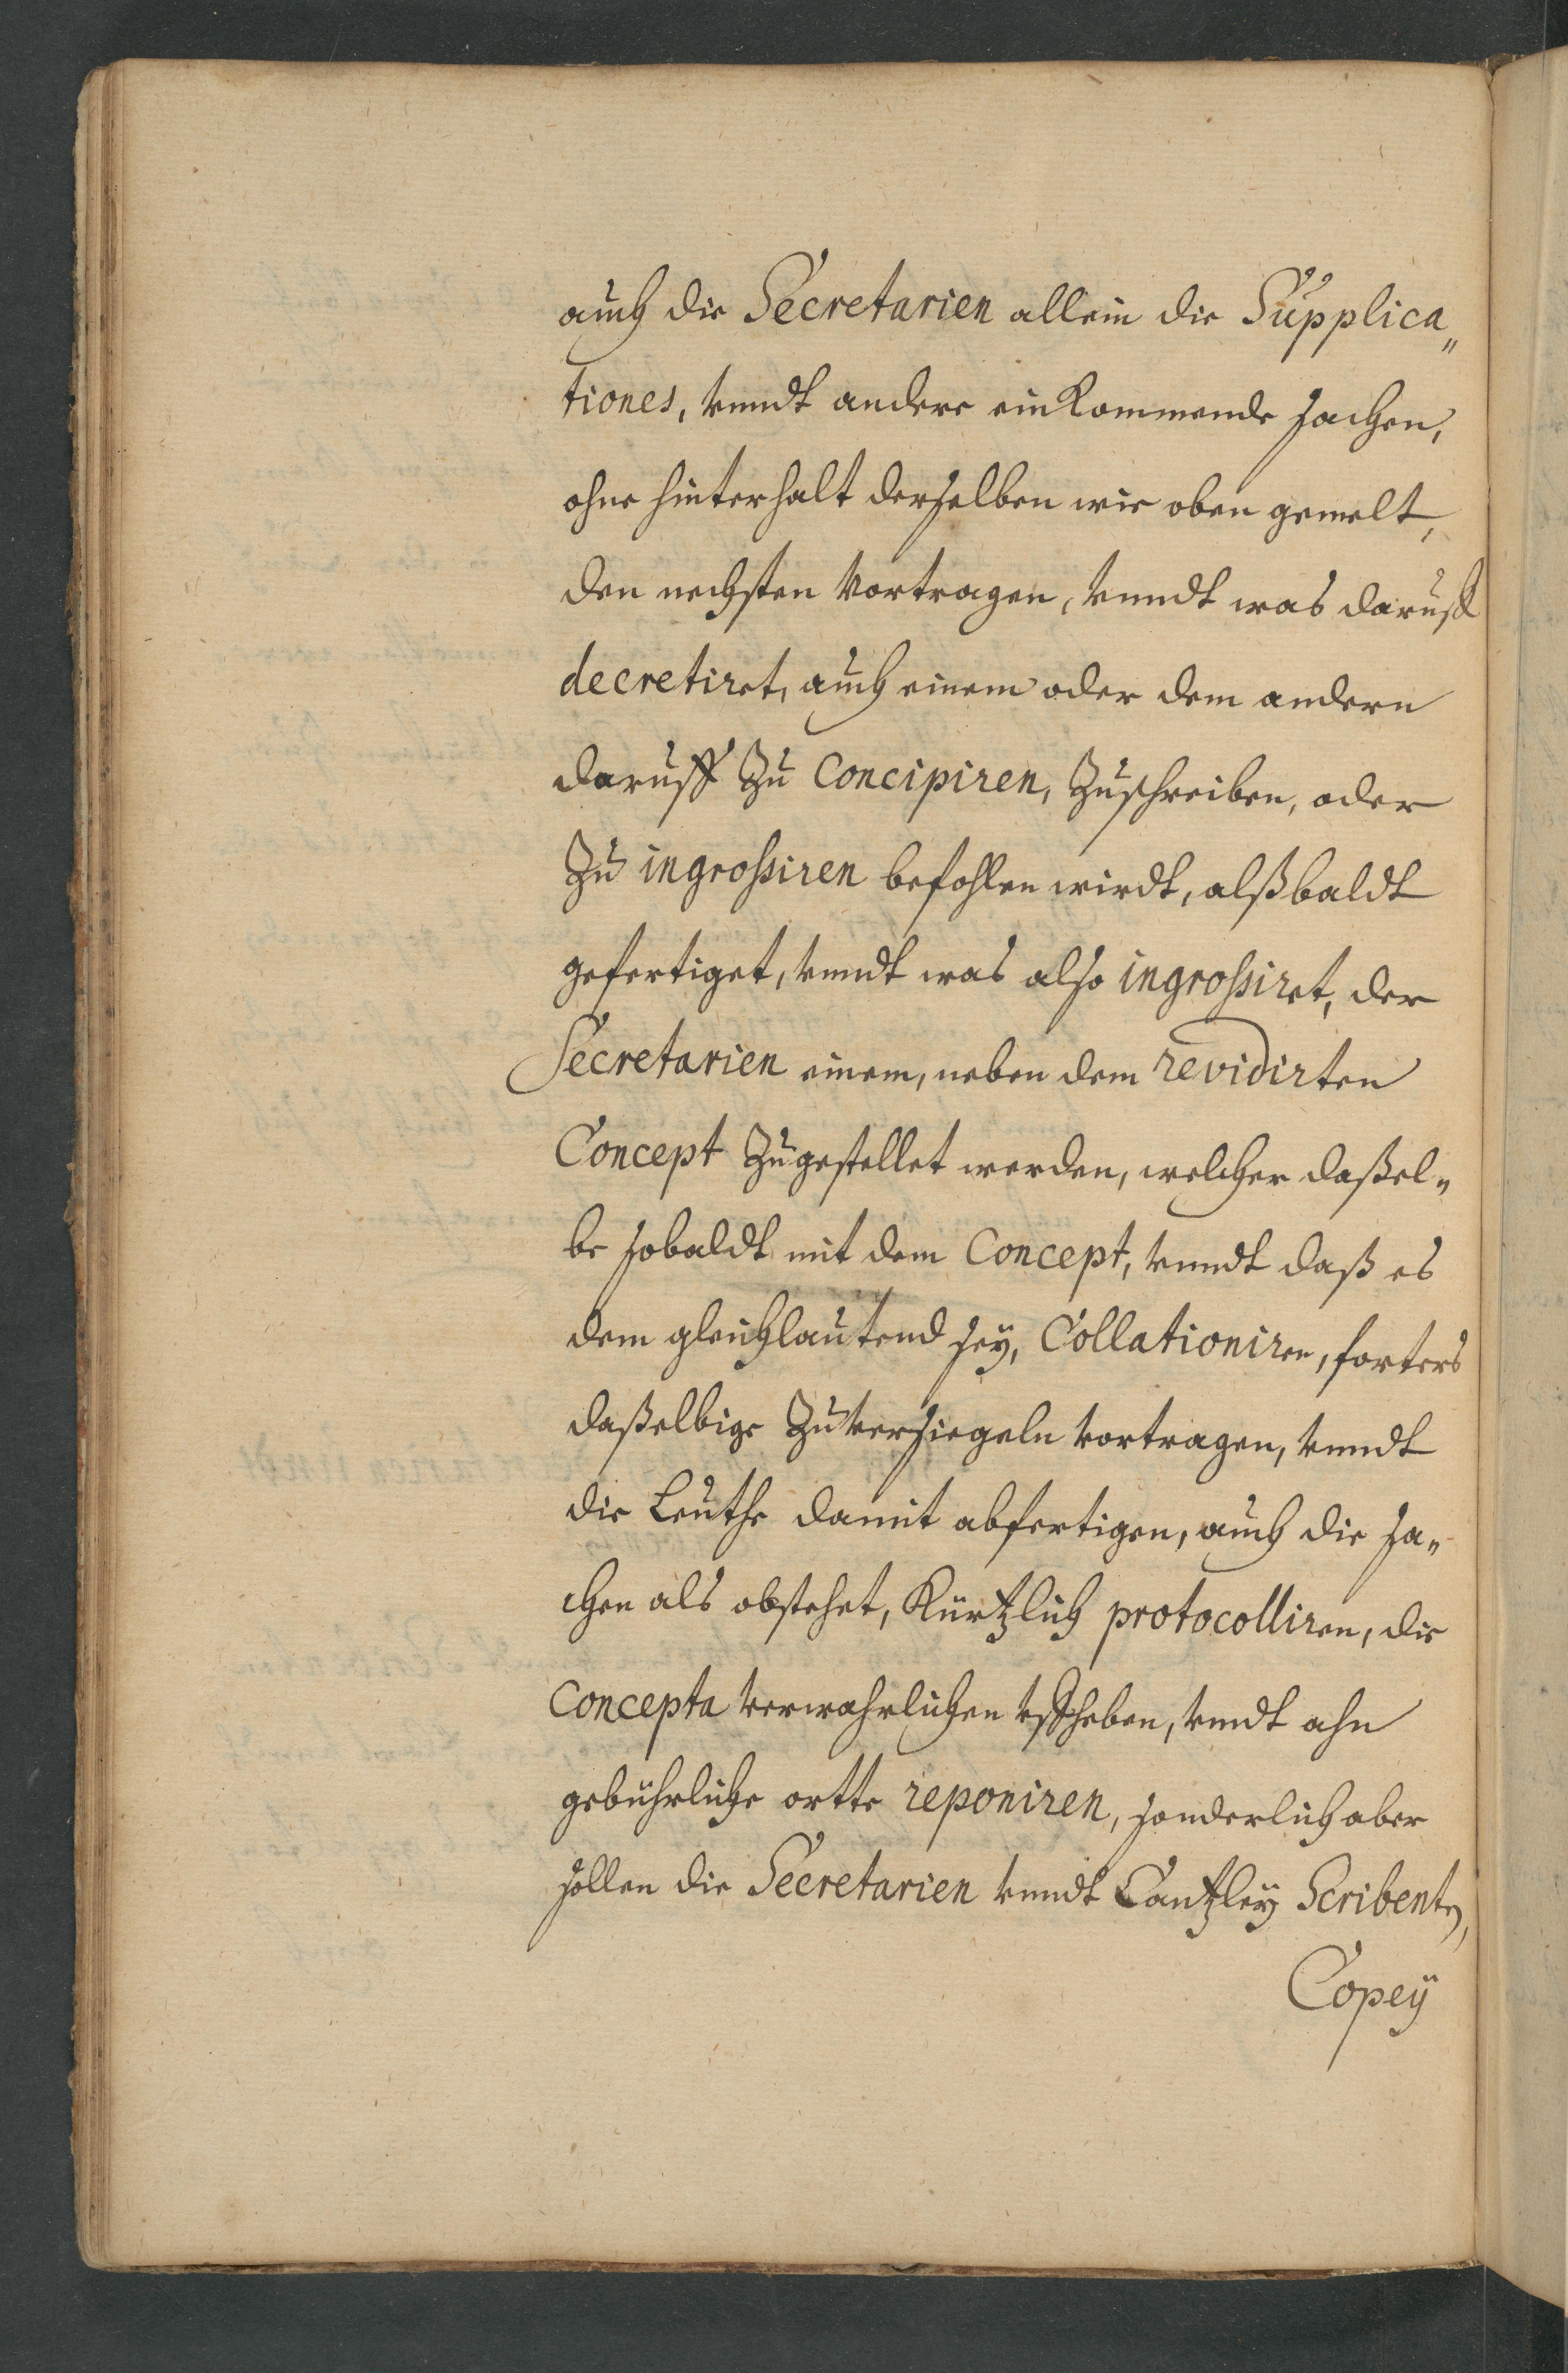 auch die Secretarien allein die Supplica„
tiones, vnndt andere einkommende sachen,
ohne hinterhalt derselben wie oben gemelt,
den nechsten vortragen, vnndt was daruff
decretiret, auch einem oder dem andern
daruff zu Concipiren, zuschreiben, oder
zu ingroßiren befohlen wirdt, alßbaldt
gefertiget, vnndt was also ingroßiret, der
Secretarien einem, neben dem revidirten
Concept zugestellet werden, welcher daßel„
be sobaldt mit dem Concept, vnndt daß es
dem gleichlautend sey, Collationiren, forters
daßelbige zuversiegeln vortragen, vnndt
die Leuthe damit abfertigen, auch die sa„
chen als obstehet, Kürtzlich protocolliren, die
Concepta verwahrlichen vffheben, vndt ahn
gebührliche ortte reponiren, sonderlich aber
sollen die Secretarien vnndt Cantzley Scribenten,
Copeÿ